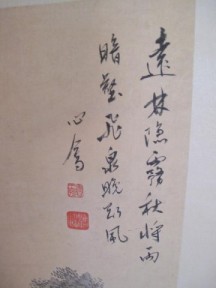 遠林隱霧秋將雨
暗壑飛泉晚欲風
心畬